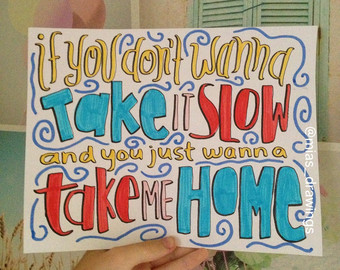 if you don't wanna
Take IT SLOW
and you just wanna
take ME HOME
@mias_drawings